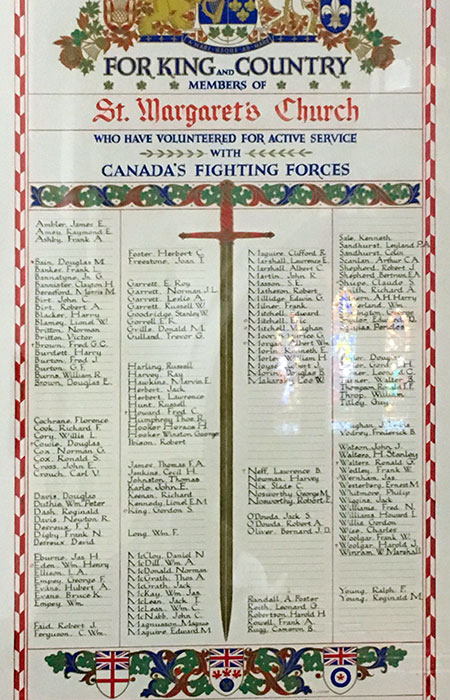 A MARI USQUE AD MARE
FOR KING AND COUNTRY
MEMBERS OF
St. Margaret's Church
WHO HAVE VOLUNTEERED FOR ACTIVE SERVICE
WITH
CANADA'S FIGHTING FORCES
Ambler, James E.
Amey, Raymond E.
Ashby, Frank A.
Bain, Douglas M.
Banker, Frank L.
Bannatyne, Jn. G.
Bannister, Clayton H.
Beresford, N. Jerria M.
Birt, John C.
Birt, Robert A.
Blacker, Harry
Blamey, Lionel W.
Britton, Norman
Britton, Victor
Brown, Fred G.C.
Burdett, Harry
Burton, Fred J.
Burton, G.F.
Burns, William R.
Brown, Douglas E.
Cochrane, Florence
Cook, Richard F.
Cory, Willis L.
Cowie, Douglas
Cox, Norman G.
Cox, Ronald S.
Cross, John E.
Crouch, Carl V.
Davis, Douglas
Duthie, Wm. Peter
Dash, Reginald
Davis, Newton R.
Derreux, T.J.
Digby, Frank N.
Derreux, David
Eburne, Jas. H.
Eden, Wm. Henry
Ellison, L.A.
Empey, George F.
Evans, Hubert A.
Evans, Bruce K.
Empey, Wm.
Faid, Robert J.
Ferguson, C. Wm.
Foster, Herbert C.
Freestone, Joan I.
Garrett, E. Roy
Garrett, Norman J.L.
Garrett, Leslie A.
Garrett, Russell W.
Goodridge, Stanley W.
Gorrell, E.R.
Grills, Donald M.
Gulland, Trevor G.
Harling, Russell
Harvey, Ray
Hawkins, Mervin E.
Herbert, Jack
Herbert, Lawrence
Hunt, Russell
Howard, Fred C.
Humphrey, Thos. R.
Hooker, Horace H.
Hooker, Winston George
Ibison, Robert
James, Thomas F.A.
Jenkins, Cecil H.
Johnston, Thomas
Karle, John E.
Keenan, Richard
Kennedy, Lionel E.M.
King, Gordon S.
Long, Wm. F.
McCloy, Daniel N.
McDill, Wm. A.
McDonald, Norman
McGrath, Thos. A.
McGrath, Jack
McKay, Wm. Jas.
McLean, Jack T.
McLean, Wm. C.
McNabb, John C.
Magnusson, Magnus
Maguire, Edward M.
Maguire, Clifford F.
Marshall, Lawrence E.
Marshall, Albert C.
Martin, John R.
Masson, S.E.
Matheson, Robert
Millidge, Edwin G.
Milner, Frank
Mitchell, Edward
Mitchell, Eric
Mitchell, Vaughan
Moore, Maurice G.
Morgan, Albert Wm.
Morlin, Kenneth E.
William H.
Robert
Douglas B.
Makarsky, Leo W.
Neff, Lawrence B.
Newman, Harvey
Nix, Slade C.
Nosworthy, George M.
Nosworthy, Robert L.
O'Douda, Jack S.
O'Douda, Robert A.
Oliver, Bernard J.D.
Randall, A. Foster
Reith, Leonard G.
Robertson, Harold H.
Rowell, Frank A.
Rugg, Cameron B.
Sale, Kenneth
Sandhurst, Leyland P.A.
Sandhurst, Colin
Scanlan, Arthur C.A.
Shepherd, Robert J.
Shepherd, Bertram E.
Claude S.
Smith, Richard A.
A.H. Harry
Wm.
Douglas
Gord
Leonard C.
Turner, Walter B.
Thompson, Ronald F.
Throp, William
Tilley, Guy
Vaughan,
Vodrey, Frederick B.
Watson, John J.
Walters, H. Stanley
Walters, Ronald G.
Wedley, Frank W.
Wernham, Jas.
Westerberg, Ernest M.
Whitmore, Philip
Wiggins, Jack
Williams, Fred. N.
Williams, Howard L.
Willis, Gordon
Wise, Charles
Woolgar, Frank W.
Woolgar, Harold O.
Winram, W. Marshall
Young, Ralph F.
Young, Reginald M.